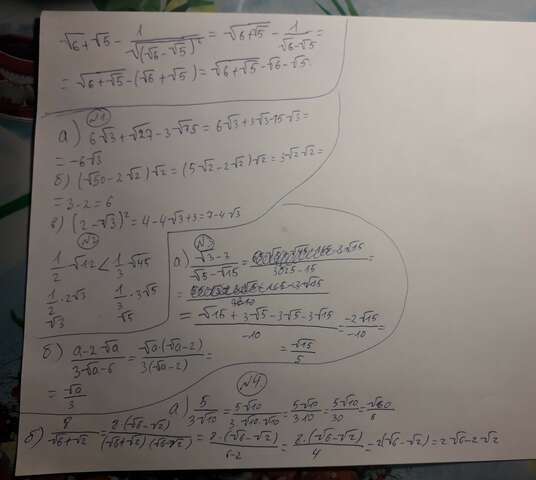 √6+√5 - 1/√(√6-√5)² = √6+√5 - 1/√6-√5 =
= √6+√5 - (√6+√5) = √6+√5 - √6 - √5
№1
а) 6√3+√27-3√75 = 6√3+3√3-15√3 =
= -6√3
б) (√50-2√2)√2 = (5√2-2√2)√2 = 3√2√2 =
= 3·2 = 6
в) (2-√3)² = 4-4√3+3 = 7-4√3
№2
1/2 √12 < 1/3 √45
1/2·2√3 1/3·3√5
√3 √5
№3
а) √3-3/√5-√15 =
= √15+3√5-3√5-3√15/-10 = -2√15/-10 =
= √15/5
б) a-2√a/3√a-6 = √a(√a-2)/3(√a-2) =
= √a/3
№4
а) 5/3√10 = 5√10/3·√10·√10 = 5√10/3·10 = 5√10/30 = √10/6
б) 8/√6+√2 = 8·(√6-√2)/(√6+√2)(√6-√2) = 8·(√6-√2)/6-2 = 8·(√6-√2)/4 = 2(√6-√2) = 2√6-2√2